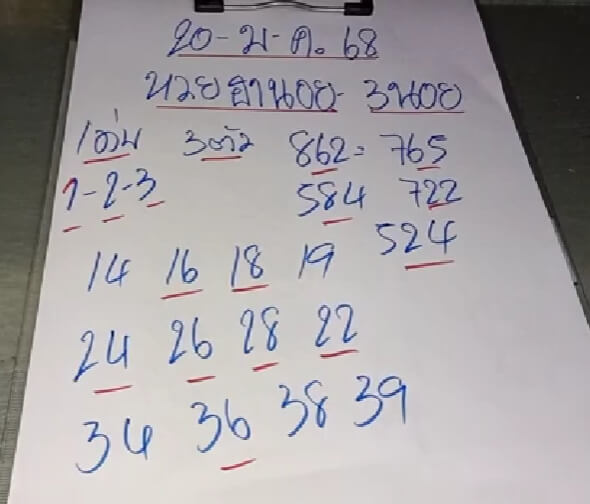 20-ม-ค. 68
หวยฮานอย- 3นอย
เด่น 3ตัว 862= 765
1-2-3 584 722
524
14 16 18 19
24 26 28 22
34 36 38 39